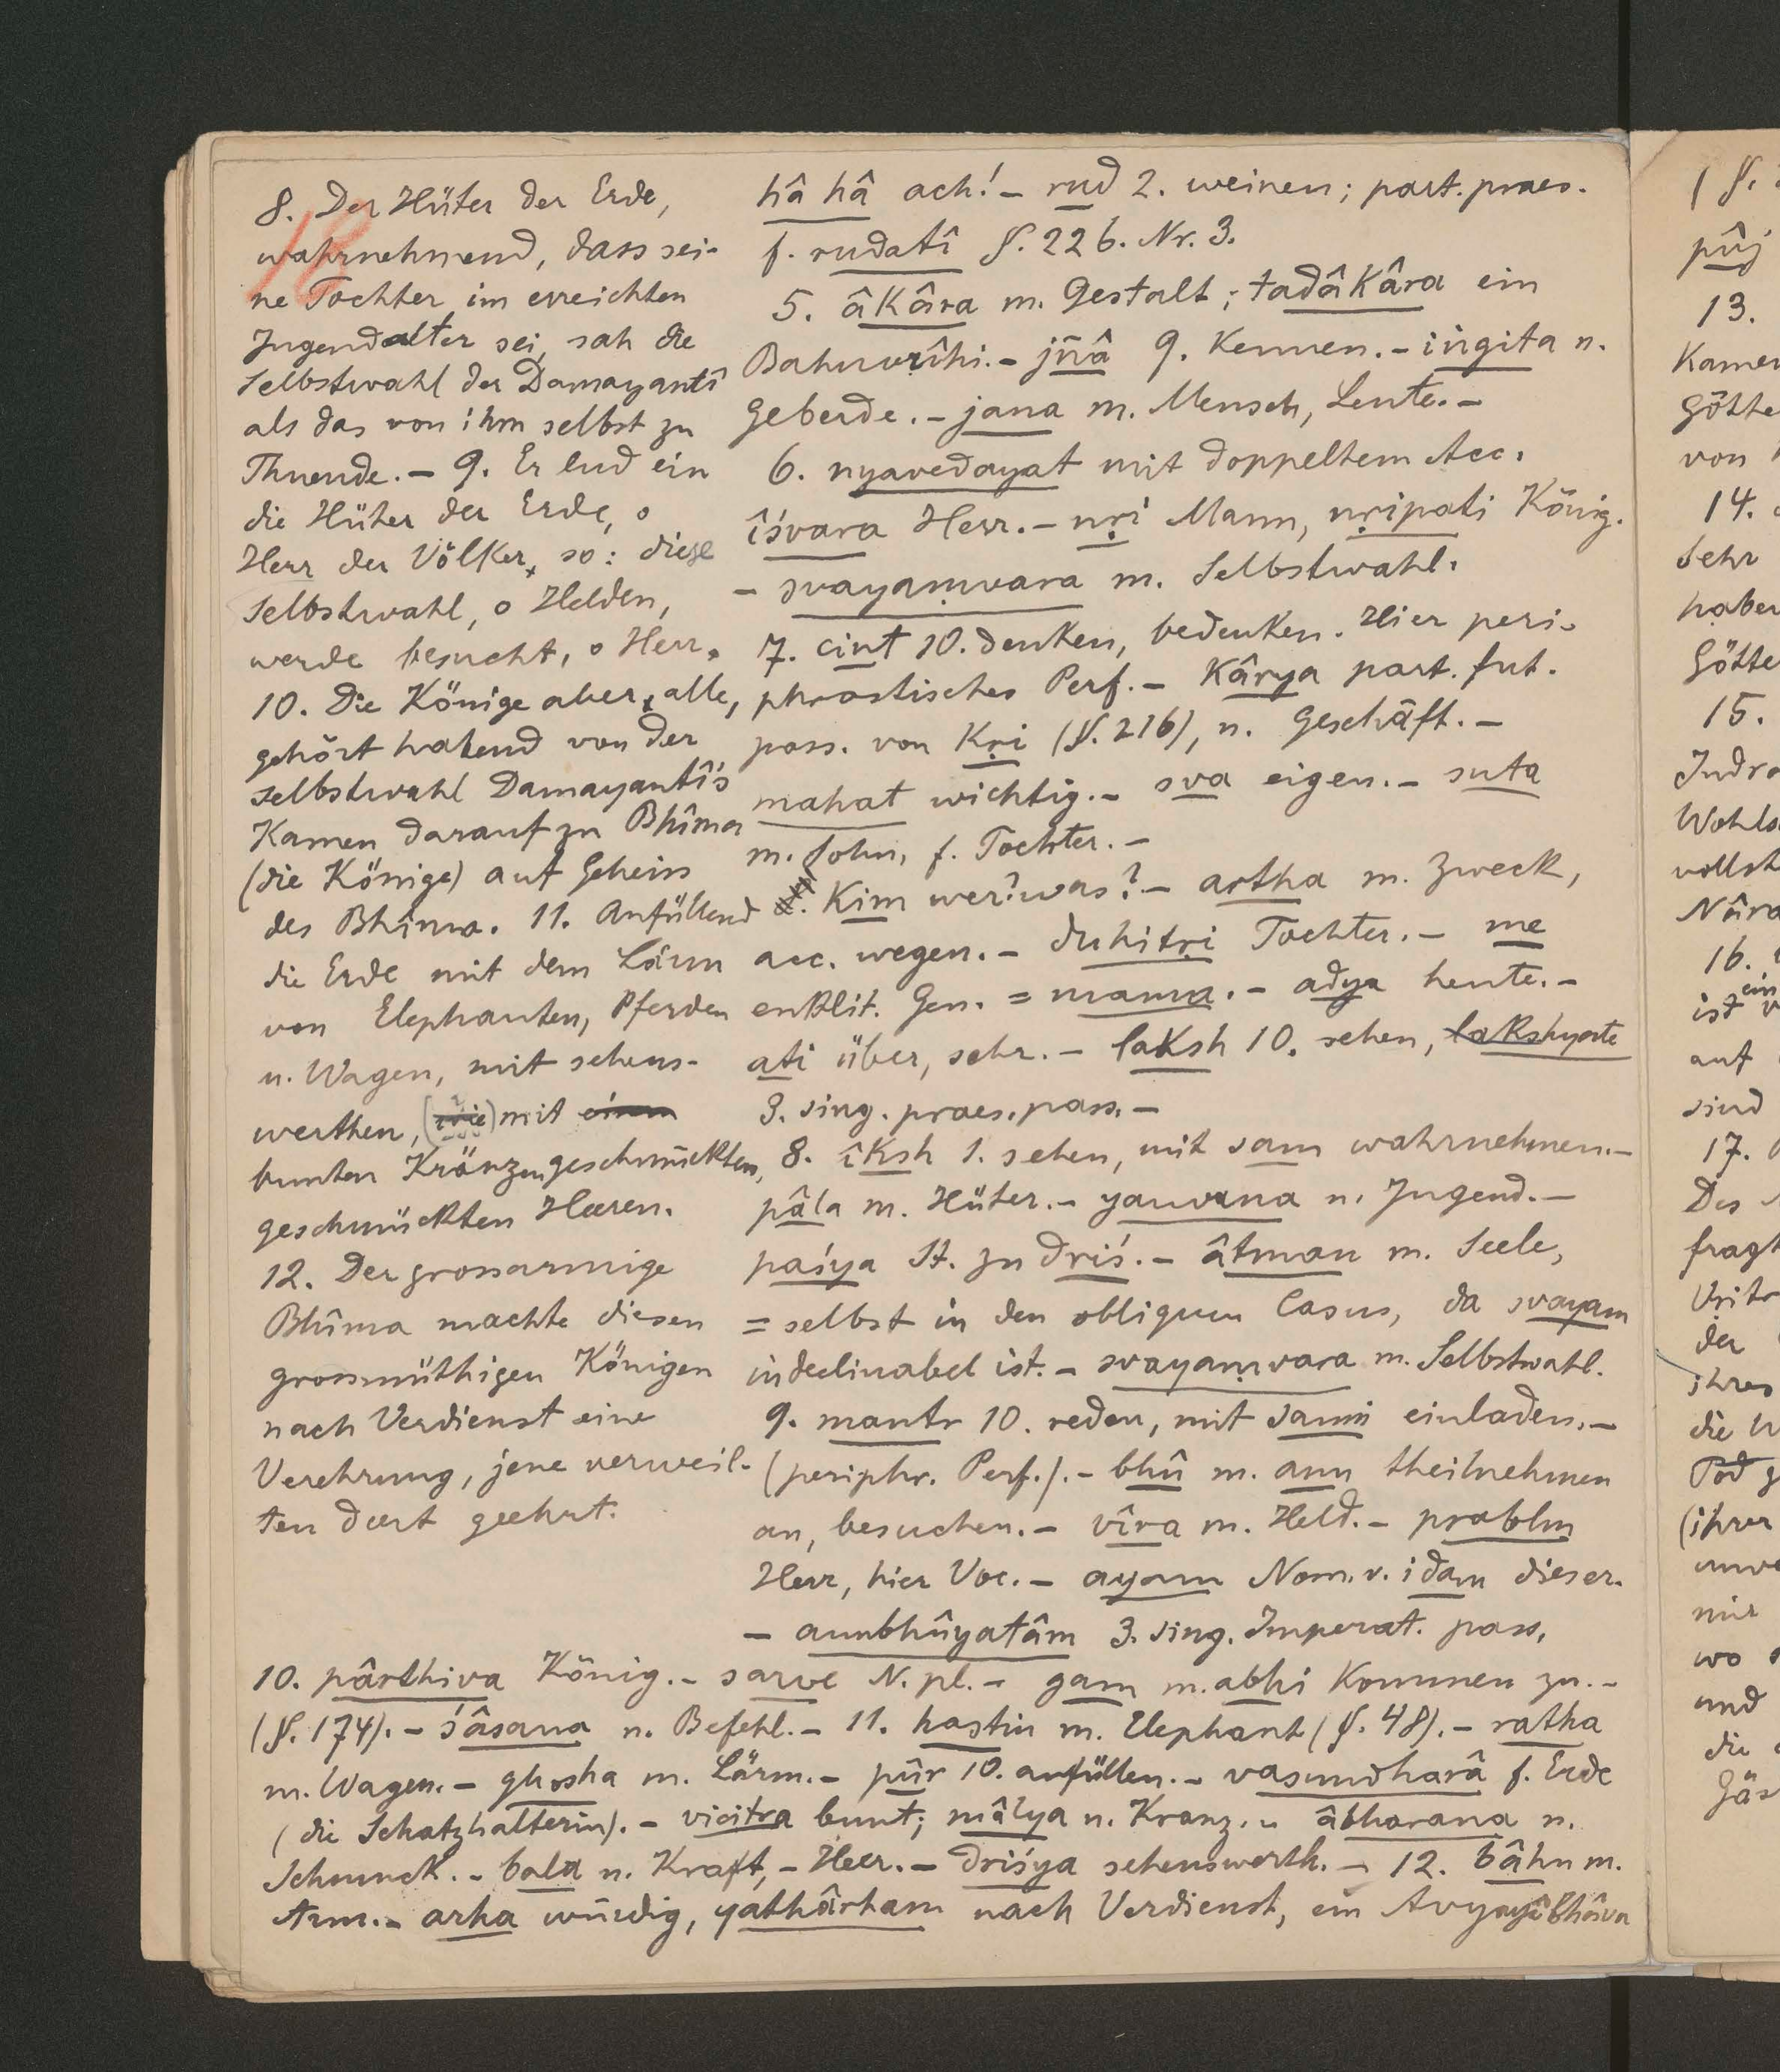 8. Der Hüter der Erde,
wahrnehmend, dass sei-
ne Tochter im erreichten
Jugendalter sei, sah die
Selbstwahl der Damayantî
als das von ihm selbst zu
Thuende. – 9. Er lud ein
die Hüter der Erde, o
Herr der Völker, so: diese
Selbstwahl, o Helden,
werde besucht, o Herr.
10. Die Könige aber, alle,
gehört habend von der
Selbstwahl Damayantî's
Kamen darauf zu Bhîma
(die Könige) auf Geheiss
des Bhîma. 11. Anfüllend
die Erde mit dem Lärm
von Elephanten, Pferden
u. Wagen, mit sehens-
werthen, (wie) mit einem
bunten Kränzen geschmückten,
geschmückten Heeren.
12. Der grossarmige
Bhîma machte diesen
grossmüthigen Königen
nach Verdienst eine
Verehrung, jene verweil-
ten dort geehrt.
hâ hâ ach! – rud 2. weinen; part. praes.
f. rudatî §. 226. Nr. 3.
5. âkâra m. Gestalt; tadâkâra ein
Bahuvrîhi. – jñâ 9. Kennen. – iṅgita n.
Geberde. – jana m. Mensch, Leute. –
6. nyavedayat mit doppeltem Acc.
îśvara Herr. – nṛi Mann, nṛipati König.
– svayaṃvara m. Selbstwahl.
7. cint 10. denken, bedenken. Hier peri-
phrastisches Perf. – Kârya part. fut.
pass. von Kṛi (§. 216), n. Geschäft. –
mahat wichtig. – sva eigen. – suta
m. Sohn, f. Tochter. –
Kim wer? was? – artha m. Zweck,
acc. wegen. – duhitṛi Tochter. – me
enklit. Gen. = mama. – adya heute. –
ati über, sehr. – laksh 10. sehen, lakshyate
3. sing. praes. pass. –
8. îksh 1. sehen, mit sam wahrnehmen. –
pâla m. Hüter. – yauvana n. Jugend. –
paśya St. zu driś. – âtman m. Seele,
= selbst in den obliquen Casus, da svayam
indeclinabel ist. – svayaṃvara m. Selbstwahl.
9. mantr 10. reden, mit sam einladen. –
(periphr. Perf.). – bhû m. anu theilnehmen
an, besuchen. – vîra m. Held. – prabhu
Herr, hier Voc. – ayam Nom. v. idam dieser.
– anubhûyatâm 3. sing. Imperat. pass.
10. pârthiva König. – sarve N. pl. – gam m. abhi Kommen zu. –
(§. 174). – śâsana n. Befehl. – 11. hastin m. Elephant (§. 48). – ratha
m. Wagen. – ghosha m. Lärm. – pûr 10. anfüllen. – vasundharâ f. Erde
(die Schatzhalterin). – vicitra bunt; mâlya n. Kranz. – âbharana n.
Schmuck. – bala n. Kraft, – Heer. – driśya sehenswerth. – 12. bâhu m.
Arm. – arha würdig, yathârham nach Verdienst, ein Avyayîbhâva
(§.
pûj
13.
Kamen
Götte
von
14.
Sehr
haben
Götte
15.
Indra
vollst
Nâra
16.
ein
ist
auf
sind
17.
Des
fragt
der
ihres
die
Tod
(ihrer
mir
wo
und
die